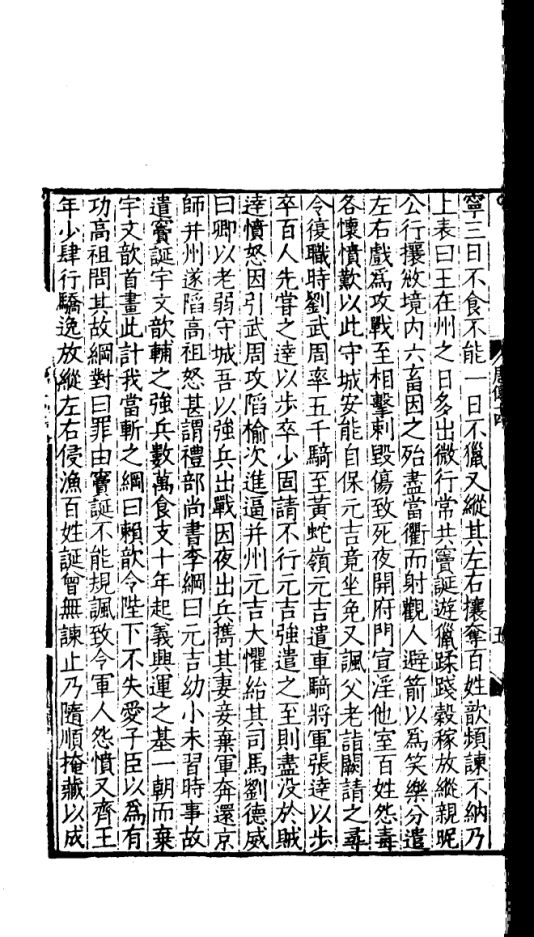 寧三日不食不能一日不獵又縱其左右攘奪百姓歆頻諫不納乃
上表曰王在州之日多出微行常共竇誕遊獵蹂踐穀稼放縱親昵
公行攘敚境內六畜因之殆盡當衢而射觀人避箭以爲笑樂分遣
左右戲爲攻戰至相擊刺毀傷致死夜開府門宣淫他室百姓怨毒
各懷憤歎以此守城安能自保元吉竟坐免又諷父老詣闕請之尋
令復職時劉武周率五千騎至黃蛇嶺元吉遣車騎將軍張達以步
卒百人先嘗之達以步卒少固請不行元吉強遣之至則盡没於賊
達憤怒因引武周攻陷榆次進逼并州元吉大懼紿其司馬劉德威
曰卿以老弱守城吾以強兵出戰因夜出兵攜其妻妾棄軍奔還京
師并州遂陷高祖怒甚謂禮部尚書李綱曰元吉幼小未習時事故
遣竇誕宇文歆輔之強兵數萬食支十年起義興運之基一朝而棄
宇文歆首畫此計我當斬之綱曰賴歆令陛下不失愛子臣以爲有
功高祖問其故綱對曰罪由竇誕不能規諷致令軍人怨憤又齊王
年少肆行驕逸放縱左右侵漁百姓誕曾無諫止乃隨順掩藏以成